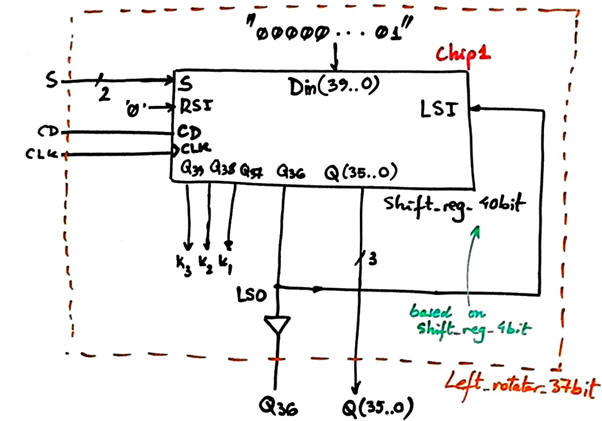 "00000...01"
Chip1
S
2
S
Din(39..0)
'0'
RSI
LSI
CD
CD
CLK
CLK
Q39 Q38 Q37 Q36 Q(35..0)
Shift_reg_40bit
K3 K2 K1
3
LSO
based on
Shift_reg_4bit
Left_rotator_37bit
Q36 Q(35..0)